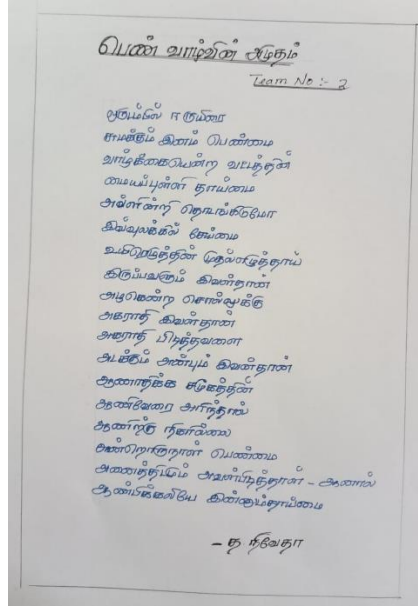 பெண் வாழ்வின் அமுதம்
Team No :- 2
ஈருயிரை
சுமக்கும் இனம் பெண்மை
வாழ்க்கையென்ற வட்டத்தின்
மையப்புள்ளி தாய்மை
அவளின்றி தொடங்கிடுமோ
இவ்வுலக்கில் சேய்மை
உயிரெழுத்தின் முதலெழுத்தாய்
இருப்பவளும் இவள்தான்
அழகென்ற சொல்லுக்கு
அகராதி இவள்தான்
அகராதி பிடித்தவளை
அடக்கும் அன்பும் இவள்தான்
ஆணாதிக்க சமூகத்தின்
ஆணிவேரை அரிந்தால்
ஆணிற்கு நிகரில்லை
அன்றொருநாள் பெண்மை
அனைத்திலும் அவள்பிடித்தாள் - ஆனால்
இன்னும்தாய்மை
- த நிவேதா